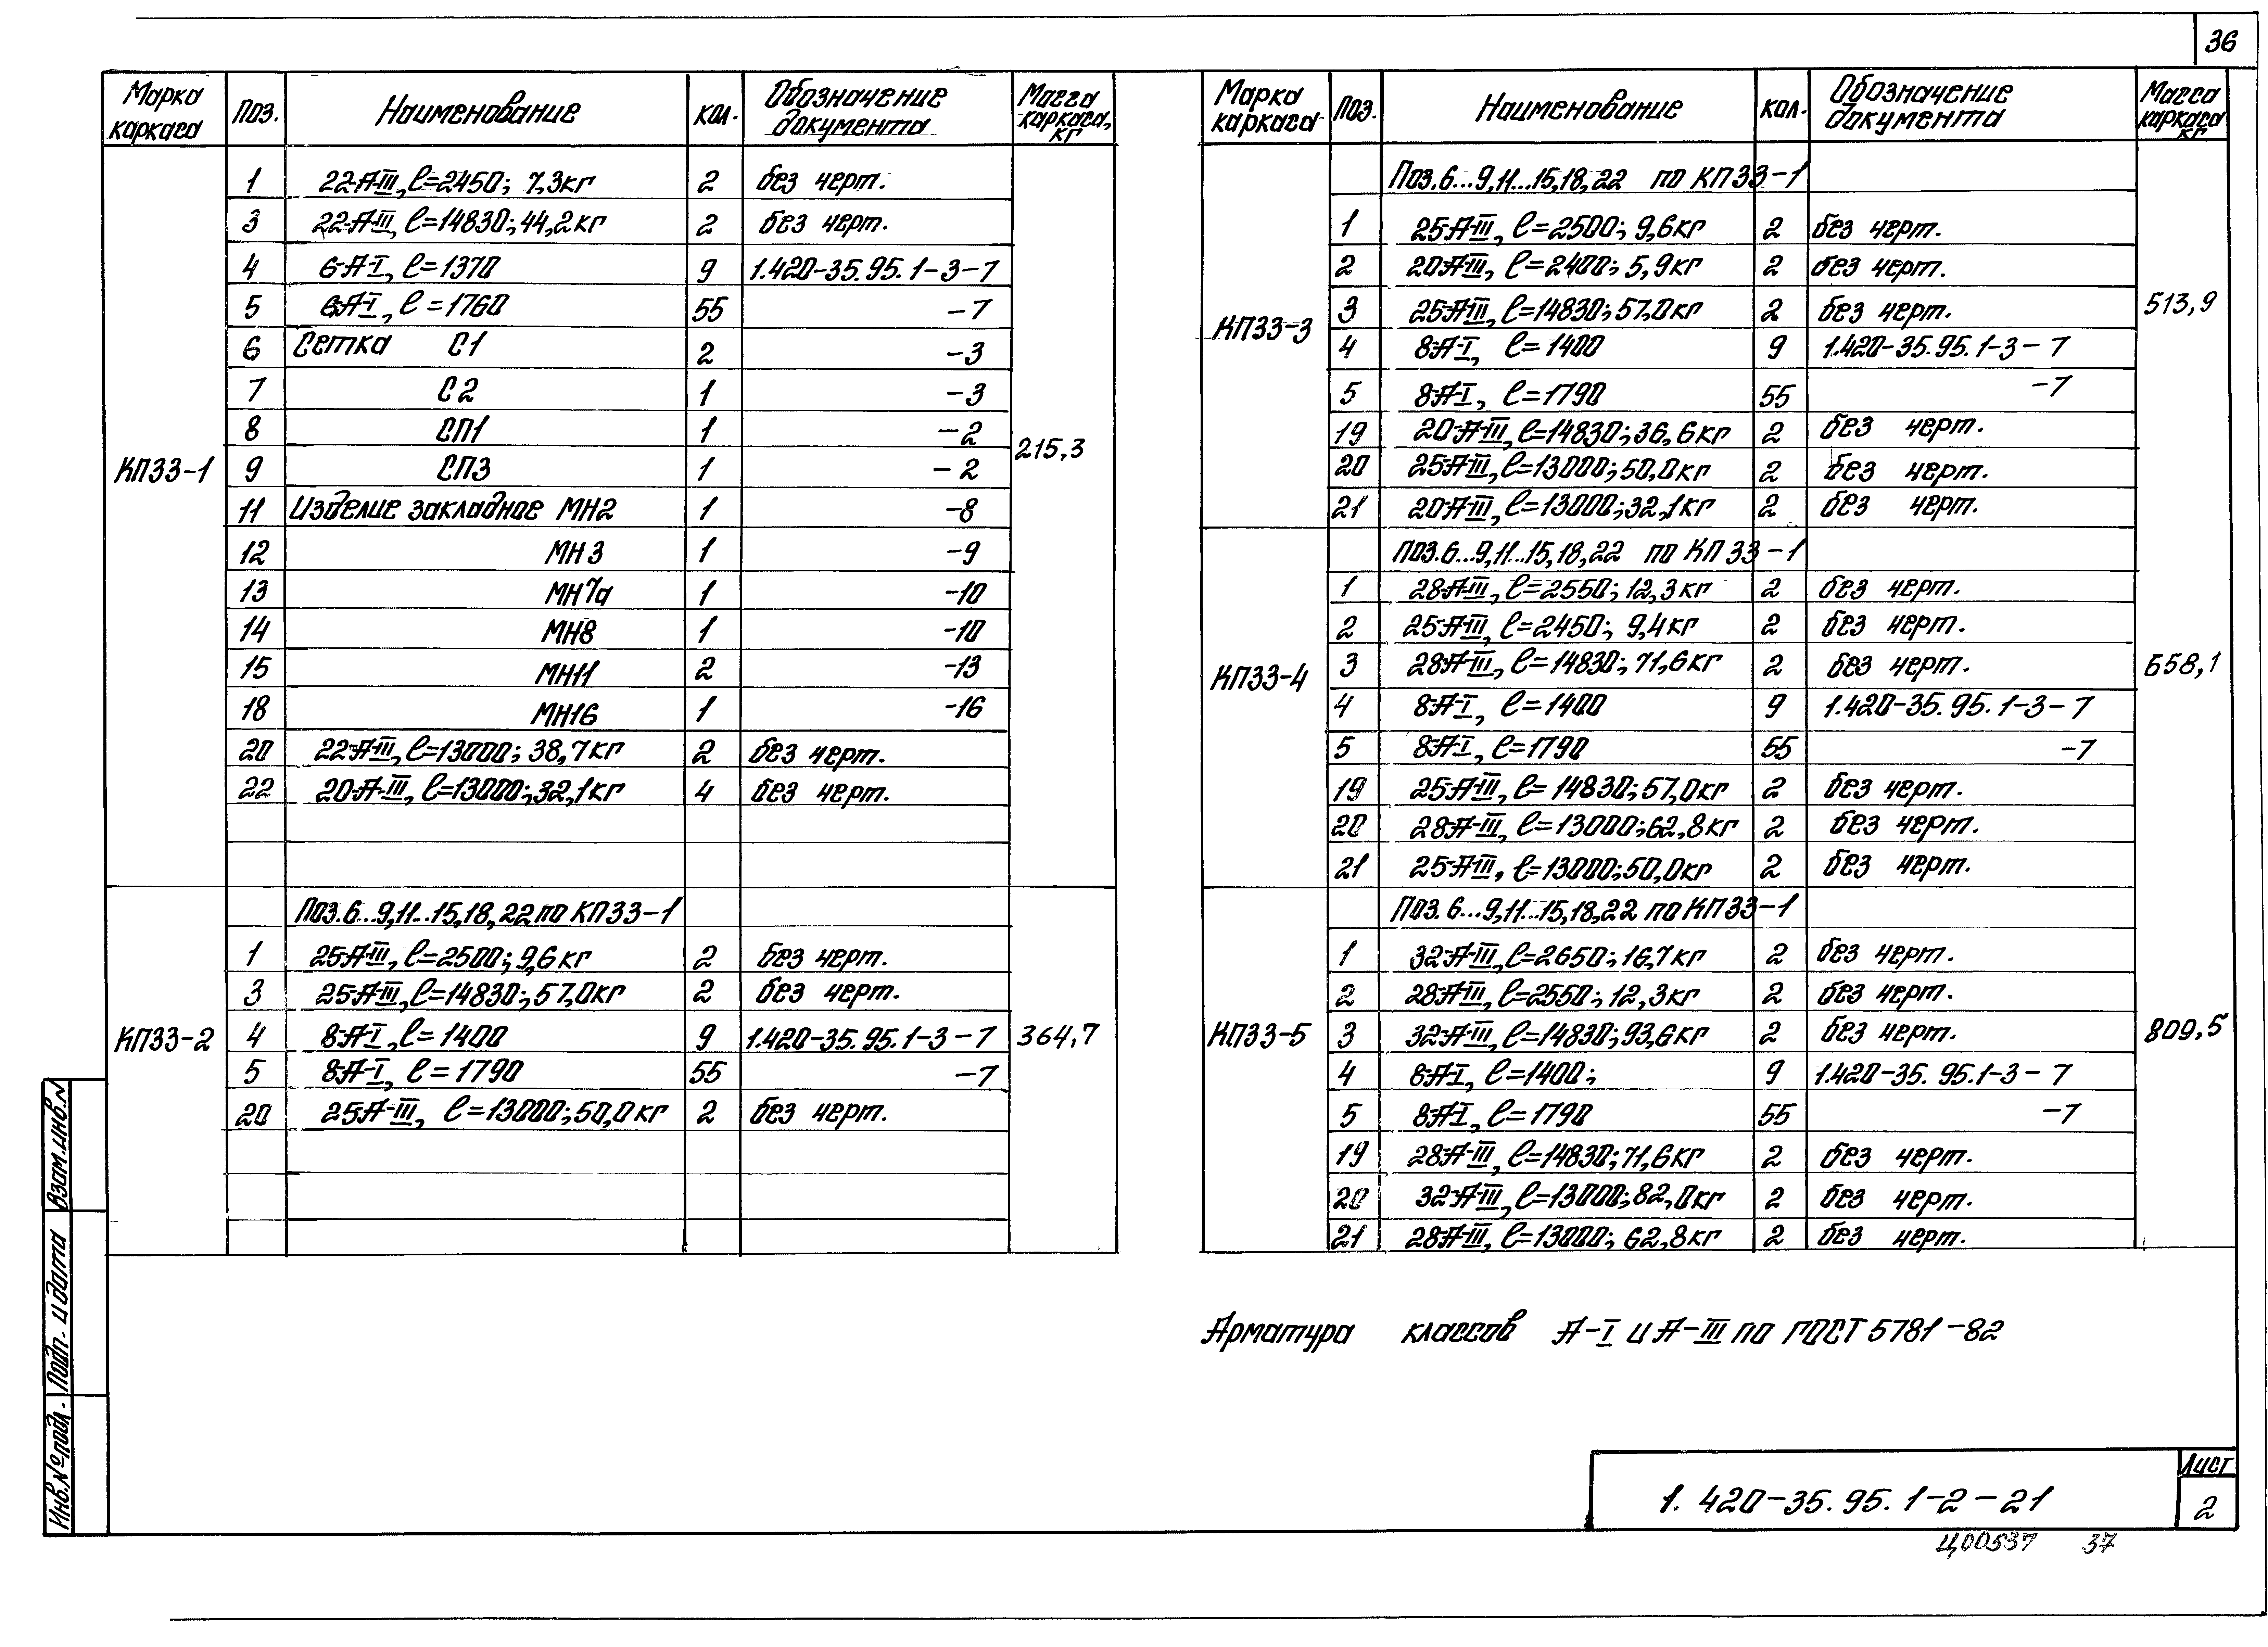 36
Марка каркаса Поз. Наименование кол. Обозначение документа Масса каркаса, кг
КП33-1 215,3
1 22-А-III, ℓ=2450; 7,3кг 2 без черт.
3 22-А-III, ℓ=14830; 44,2кг 2 без черт.
4 6-А-I, ℓ=1370 9 1.420-35.95.1-3-7
5 6-А-I, ℓ=1760 55 -7
6 Сетка С1 2 -3
7 С2 1 -3
8 СП1 1 -2
9 СП3 1 -2
11 Изделие закладное МН2 1 -8
12 МН3 1 -9
13 МН7а 1 -10
14 МН8 1 -10
15 МН11 2 -13
18 МН16 1 -16
20 22-А-III, ℓ=13000; 38,7кг 2 без черт.
22 20-А-III, ℓ=13000; 32,1кг 4 без черт.
КП33-2 364,7
Поз. 6...9, 11...15, 18, 22 по КП33-1
1 25-А-III, ℓ=2500; 9,6кг 2 без черт.
3 25-А-III, ℓ=14830; 57,0кг 2 без черт.
4 8-А-I, ℓ=1400 9 1.420-35.95.1-3-7
5 8-А-I, ℓ=1790 55 -7
20 25-А-III, ℓ=13000; 50,0кг 2 без черт.
Марка каркаса Поз. Наименование кол. Обозначение документа Масса каркаса кг
КП33-3 513,9
Поз. 6...9, 11...15, 18, 22 по КП33-1
1 25-А-III, ℓ=2500; 9,6кг 2 без черт.
2 20-А-III, ℓ=2400; 5,9кг 2 без черт.
3 25-А-III, ℓ=14830; 57,0кг 2 без черт.
4 8-А-I, ℓ=1400 9 1.420-35.95.1-3-7
5 8-А-I, ℓ=1790 55 -7
19 20-А-III, ℓ=14830; 36,6кг 2 без черт.
20 25-А-III, ℓ=13000; 50,0кг 2 без черт.
21 20-А-III, ℓ=13000; 32,1кг 2 без черт.
КП33-4 658,1
Поз. 6...9, 11...15, 18, 22 по КП33-1
1 28-А-III, ℓ=2550; 12,3кг 2 без черт.
2 25-А-III, ℓ=2450; 9,4кг 2 без черт.
3 28-А-III, ℓ=14830; 71,6кг 2 без черт.
4 8-А-I, ℓ=1400 9 1.420-35.95.1-3-7
5 8-А-I, ℓ=1790 55 -7
19 25-А-III, ℓ=14830; 57,0кг 2 без черт.
20 28-А-III, ℓ=13000; 62,8кг 2 без черт.
21 25-А-III, ℓ=13000; 50,0кг 2 без черт.
КП33-5 809,5
Поз. 6...9, 11...15, 18, 22 по КП33-1
1 32-А-III, ℓ=2650; 16,7кг 2 без черт.
2 28-А-III, ℓ=2550; 12,3кг 2 без черт.
3 32-А-III, ℓ=14830; 93,6кг 2 без черт.
4 8-А-I, ℓ=1400; 9 1.420-35.95.1-3-7
5 8-А-I, ℓ=1790 55 -7
19 28-А-III, ℓ=14830; 71,6кг 2 без черт.
20 32-А-III, ℓ=13000; 82,0кг 2 без черт.
21 28-А-III, ℓ=13000; 62,8кг 2 без черт.
Арматура классов А-I и А-III по ГОСТ 5781-82
Взам. инв. №
Подп. и дата
Инв. № подл.
1.420-35.95.1-2-21
Лист
2
Ц00537 37